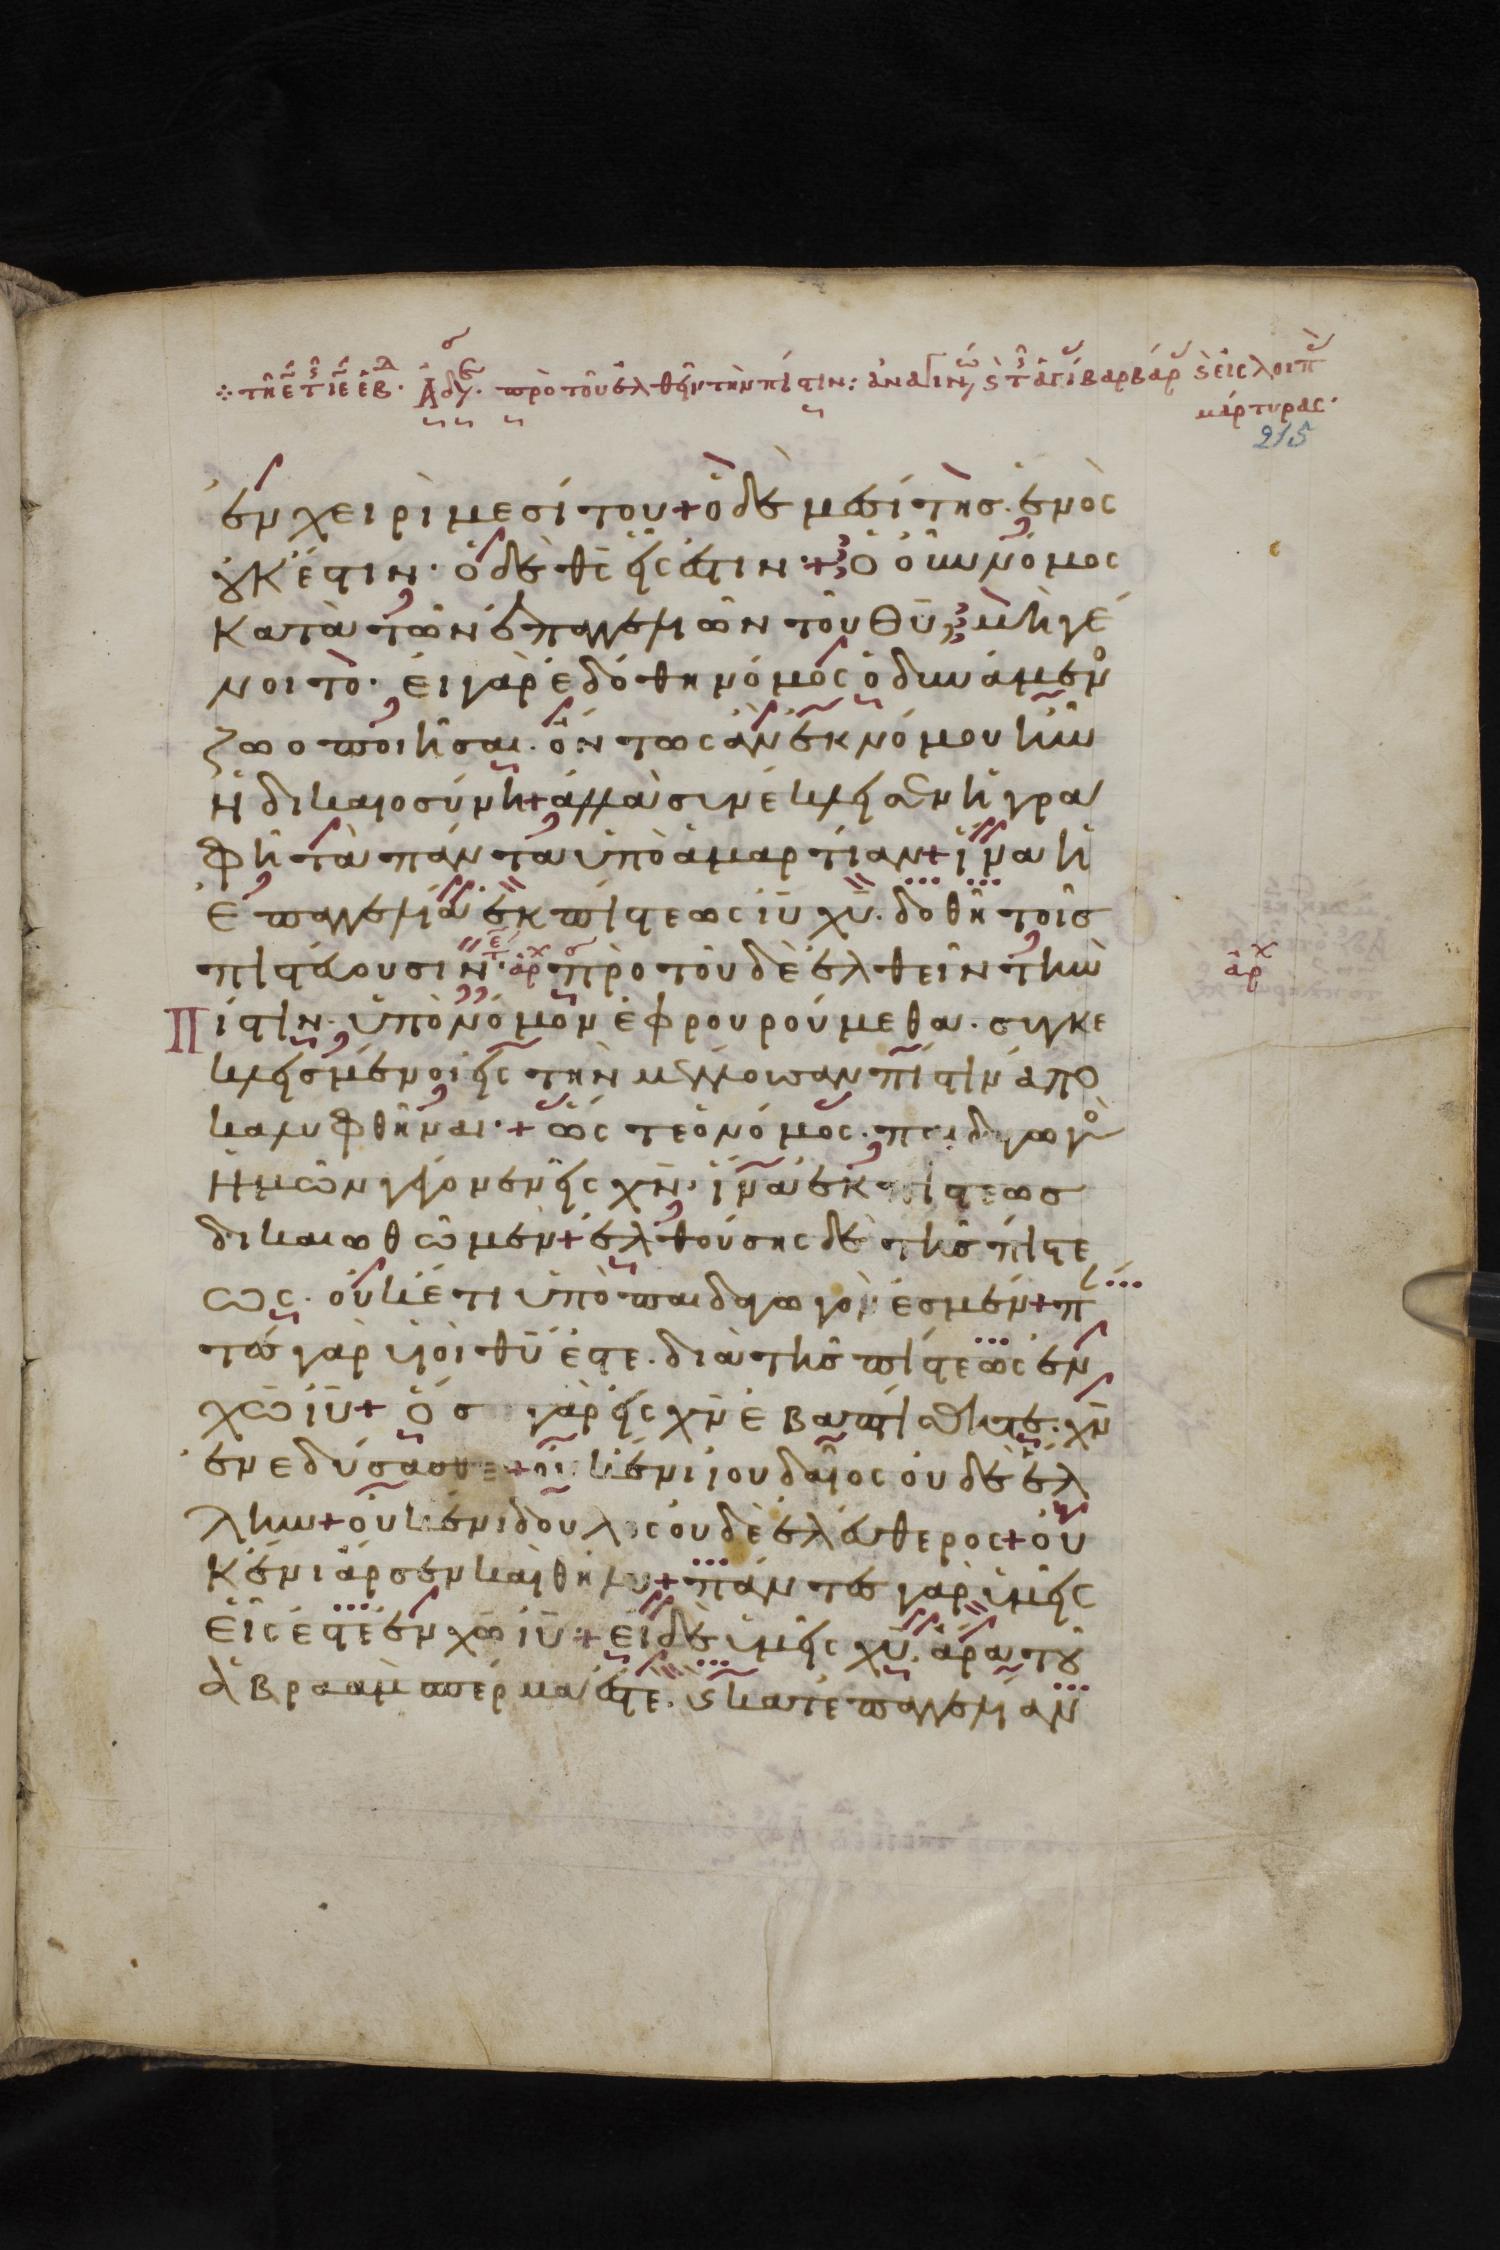 τῆ ἐ τ ιε ἑβ. Ἀδε. πρὸ τοῦ ἐλθεῖν τὴν πίστιν: ἀνάγιν, ϛ τ ἁγί βαρβάρ ϛ εἰς λοιπ
μάρτυρας.
215
ἐν χειρὶ μεσίτου + ὁ δὲ μεσίτης. ἑνὸς
οὐκ ἔστιν. ὁ δὲ θς εἷς ἐστιν. + ὁ οὖν νόμος
κατὰ τῶν ἐπαγγελιῶν τοῦ θῦ; μὴ γέ
νοιτο. εἰ γὰρ ἐδόθη νόμος ὁ δυνάμεν
ζωοποιῆσαι. ὄντως ἂν ἐκ νόμου ἦν
ἡ δικαιοσύνη + ἀλλὰ συνέκλεισεν ἡ γρα
φὴ τὰ πάντα ὑπὸ ἁμαρτίαν + ἵνα ἡ
ἐπαγγελία ἐκ πίστεως ιῦ χῦ. δοθῆ τοῖσ
πιστεύουσιν. ἀρχ πρὸ τοῦ δὲ ἐλθεῖν τὴν
ἀρχ
Πίστιν. ὑπὸ νόμον ἐφρουρούμεθα. συγκε
κλεισμένοι εἰς τὴν μέλλουσαν πίστιν ἀπο
καλυφθῆναι. + ὥστε ὁ νόμος. παιδαγωγὸ
ἡμῶν γέγονεν εἰς χν. ἵνα ἐκ πίστεωσ
δικαιωθῶμεν + ἐλθούσης δὲ τῆς πίστε
ως. οὐκ έτι ὑπὸ παιδαγωγόν ἐσμεν + π
τες γὰρ υἱοὶ θῦ ἐστε. διὰ τῆς πίστεως ἐν
χω ιῦ + ὅσ γὰρ εἰς χν ἐβαπτίσθητε. χν
ἐνεδύσασθε + οὐκ ένι ἰουδαῖος οὐδὲ ἕλ
λην + οὐκ ένι δοῦλος οὐδὲ ἐλεύθερος + οὐ
κ ένι ἄρσεν καὶ θῆλυ + πάντες γὰρ ὑμεῖς
εἷς ἐστε ἐν χω ιῦ + εἰ δὲ ὑμεῖς χῦ. ἄρα τοῦ
ἀβραὰμ σπέρμα ἐστε. ϛ κατ ἐπαγγελίαν